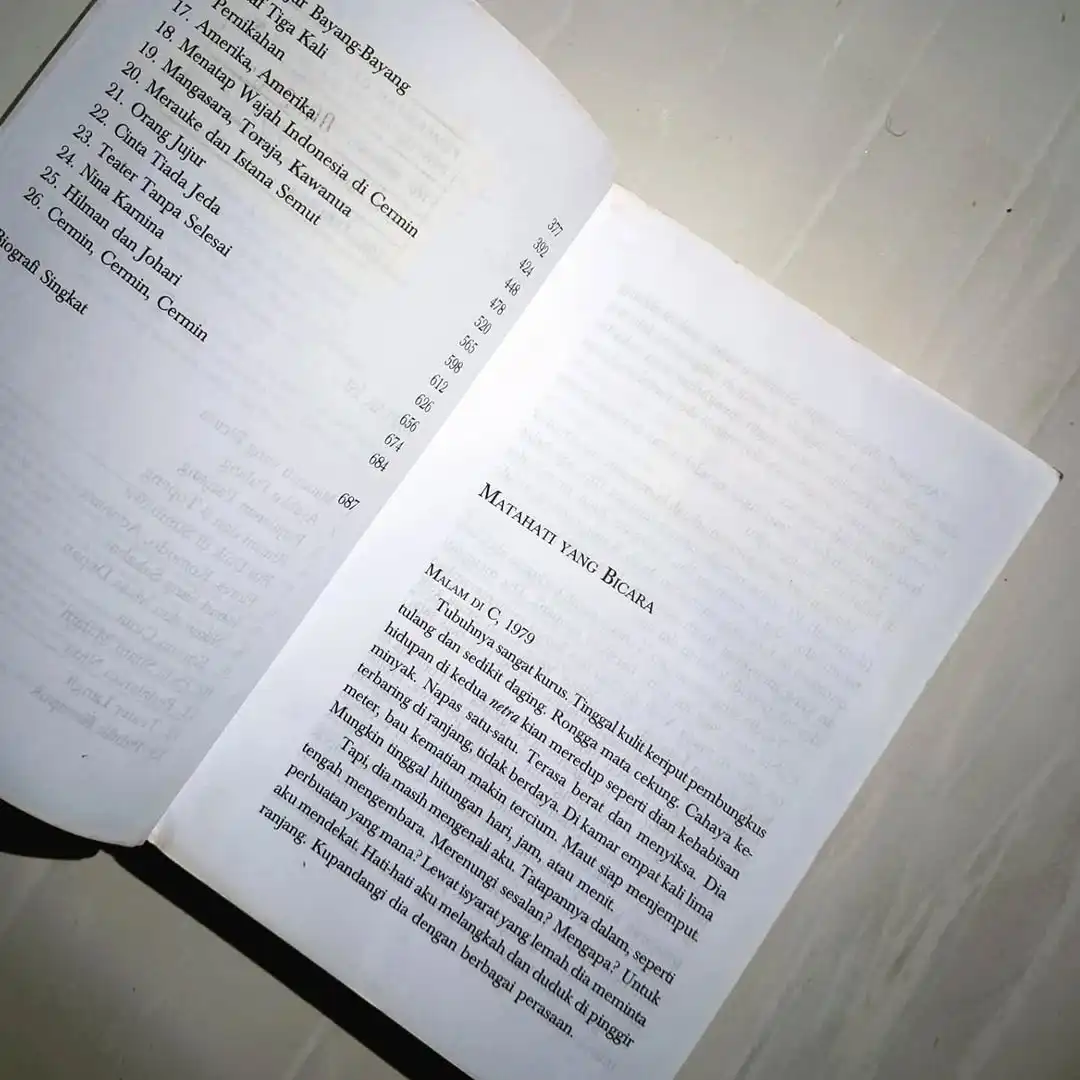 Bayang-Bayang
Tiga Kali
Pernikahan
17. Amerika, Amerika
18. Menatap Wajah Indonesia di Cermin
19. Mangasara, Toraja, Kawanua
20. Merauke dan Istana Semut
21. Orang Jujur
22. Cinta Tiada Jeda
23. Teater Tanpa Selesai
24. Nina Karnina
25. Hilman dan Johari
26. Cermin, Cermin, Cermin
Biografi Singkat
377
392
424
448
478
520
565
598
612
626
656
674
684
687
MATAHATI YANG BICARA
MALAM DI C, 1979
Tubuhnya sangat kurus. Tinggal kulit keriput pembungkus
tulang dan sedikit daging. Rongga mata cekung. Cahaya ke-
hidupan di kedua netra kian meredup seperti dian kehabisan
minyak. Napas satu-satu. Terasa berat dan menyiksa. Dia
terbaring di ranjang, tidak berdaya. Di kamar empat kali lima
meter, bau kematian makin tercium. Maut siap menjemput.
Mungkin tinggal hitungan hari, jam, atau menit.
Tapi, dia masih mengenali aku. Tatapannya dalam, seperti
tengah mengembara. Merenungi sesalan? Mengapa? Untuk
perbuatan yang mana? Lewat isyarat yang lemah dia meminta
aku mendekat. Hati-hati aku melangkah dan duduk di pinggir
ranjang. Kupandangi dia dengan berbagai perasaan.